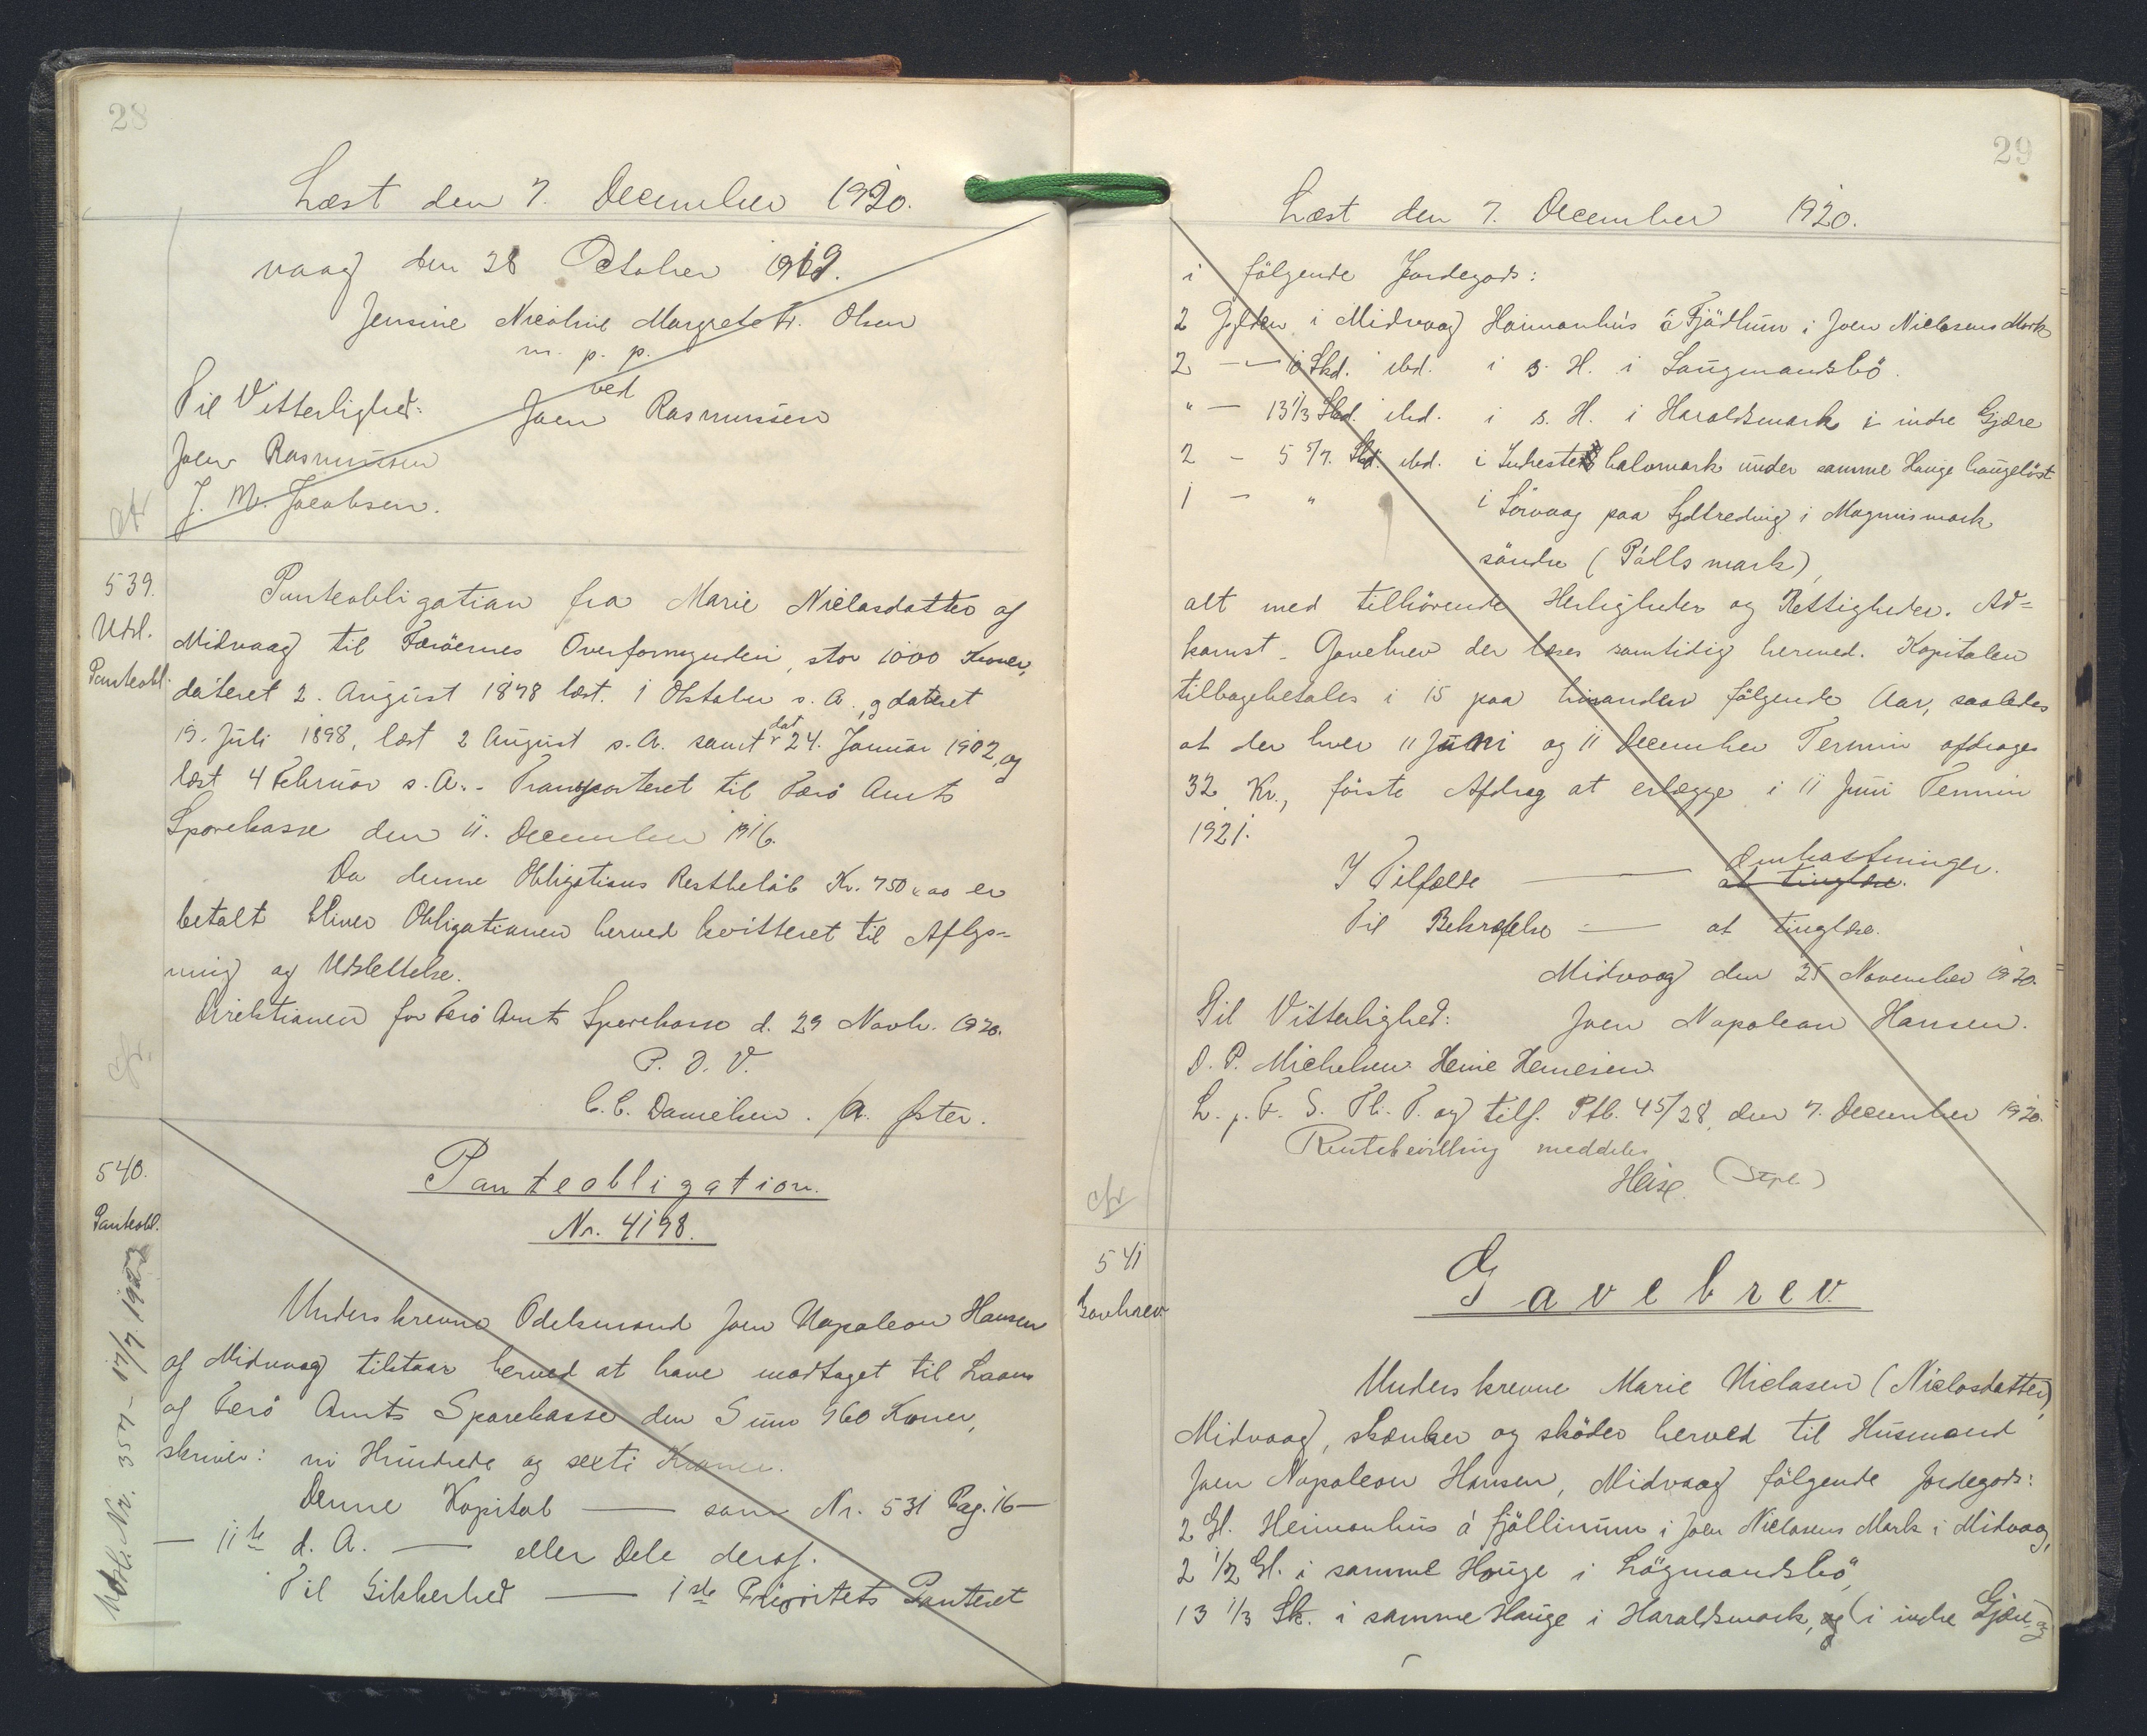 28
Læst den 7. December 1920.
vaag den 28 October 1919.
Jensine Nicoline Margrete Fr. Olsen
m. p. p.
ved
Til Vitterlighed: Joen Rasmussen
Joen Rasmussen
J. M. Jacobsen.
539.
Udsl.
Panteobl.
Panteobligation fra Marie Nielasdatter af
Midvaag til Færöernes Overformynderi, stor 1000 Kroner,
dateret 2. August 1878 læst. 1 Oktober s. A., og dateret
19. Juli 1898, læst 2 August s. A. samt dat. 24. Januar 1902, og
læst 4 Februar s. A. - Transporteret til Færö Amts
Sparekasse den 11. December 1916.
Da denne Obligations Restbelöb Kr. 750 " 00 er
betalt bliver Obligationen herved kvitteret til Aflys-
ning og Udslettelse.
Direktionen for Færö Amts Sparekasse d. 29 Novb. 1920.
P. D. V.
C. C. Danielsen. /A. Øster.
cfr.
540.
Panteobl.
Udsl. Nr. 357 - 17/7 1923
Panteobligation.
Nr. 4198.
Underskrevne Odelsmand Joen Napoleon Hansen
af Midvaag tilstaar herved at have modtaget til Laans
af Færö Amts Sparekasse den Sum 960 Kroner,
skriver: ni Hundrede og sexti Kroner.
Denne Kapital — som Nr. 531 Pag. 16 —
— 11te d. A. — eller Dele deraf.
Til Sikkerhed — 1ste Prioritets Panteret
29
Læst den 7. December 1920.
i fölgende Jordegods:
2 Gylden i Midvaag Haimanhús á Fjödlum i Joen Nielasens Mark
2 — 10 Skd. ibd. i s. H. i Laugmandsbö.
" — 13 1/3 Skd. ibd. i s. H. i Haraldsmark i indre Gjære
2 - 5 5/7. Skd. ibd. i Indreste halvmark under samme Hauge haugelöst
1 - " i Sörvaag paa Sydtreding i Magnusmark
söndre (Pállsmark),
alt med tilhörende Herligheder og Rettigheder. Ad-
komst - Gavebrev der læses samtidig hermed. Kapitalen
tilbagebetales i 15 paa hinanden fölgende Aar, saaledes
at der hver 11 Juni og 11 December Termin afdrages
32 Kr., förste Afdrag at erlægge i 11 Juni Termin
1921.
I Tilfælde — Omkostninger.
at tinglæse.
Til Bekræftelse — at tinglæse.
Midvaag den 25 November 1920.
Til Vitterlighed: Joen Napoleon Hansen.
D. P. Michelsen. Heine Heinesen.
L. p. F. S. Th. T. og tilf. Ptb. 45/28, den 7. December 1920.
Rentebevilling meddeles
Heise. (Stpl.)
cfr
541
Gavebrev
Gavebrev
Underskrevne Marie Nielasen (Nielasdatter),
Midvaag, skænker og sköder herved til Husmand
Joen Napoleon Hansen, Midvaag fölgende Jordegods:
2 Gl. Heimanhús á fjöllinum i Joen Nielasens Mark i Midvaag,
2 1/2 Gl. i samme Hauge i Lögmandsbö,
13 1/3 Sk. i samme Hauge i Haraldsmark, (i indre Gjære, og